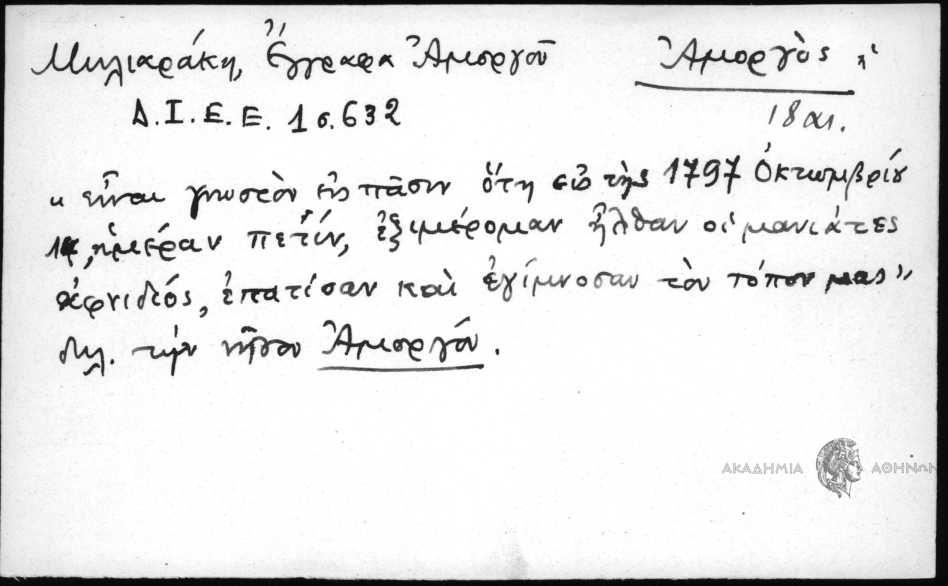 Μηλιαράκη, Έγγραφα Ἀμοργοῦ Ἀμοργὸς ἡ
Δ.Ι.Ε.Ε. 1 σ. 632 18 αι.
« εἶναι γνωστὸν εἰς πᾶσιν ὅτη εἰς τὴς 1797 Ὀκτωμβρίου
14, ἡμέραν πετὶν, ἐξιμέρομαν ἦλθαν οἱ μανιάτες
ἀφνιδιός, ἐπατίσαν καὶ ἐγίμνοσαν τὸν τόπον μας»
δηλ. τὴν νῆσον Ἀμοργόν.
ΑΚΑΔΗΜΙΑ ΑΘΗΝΩΝ